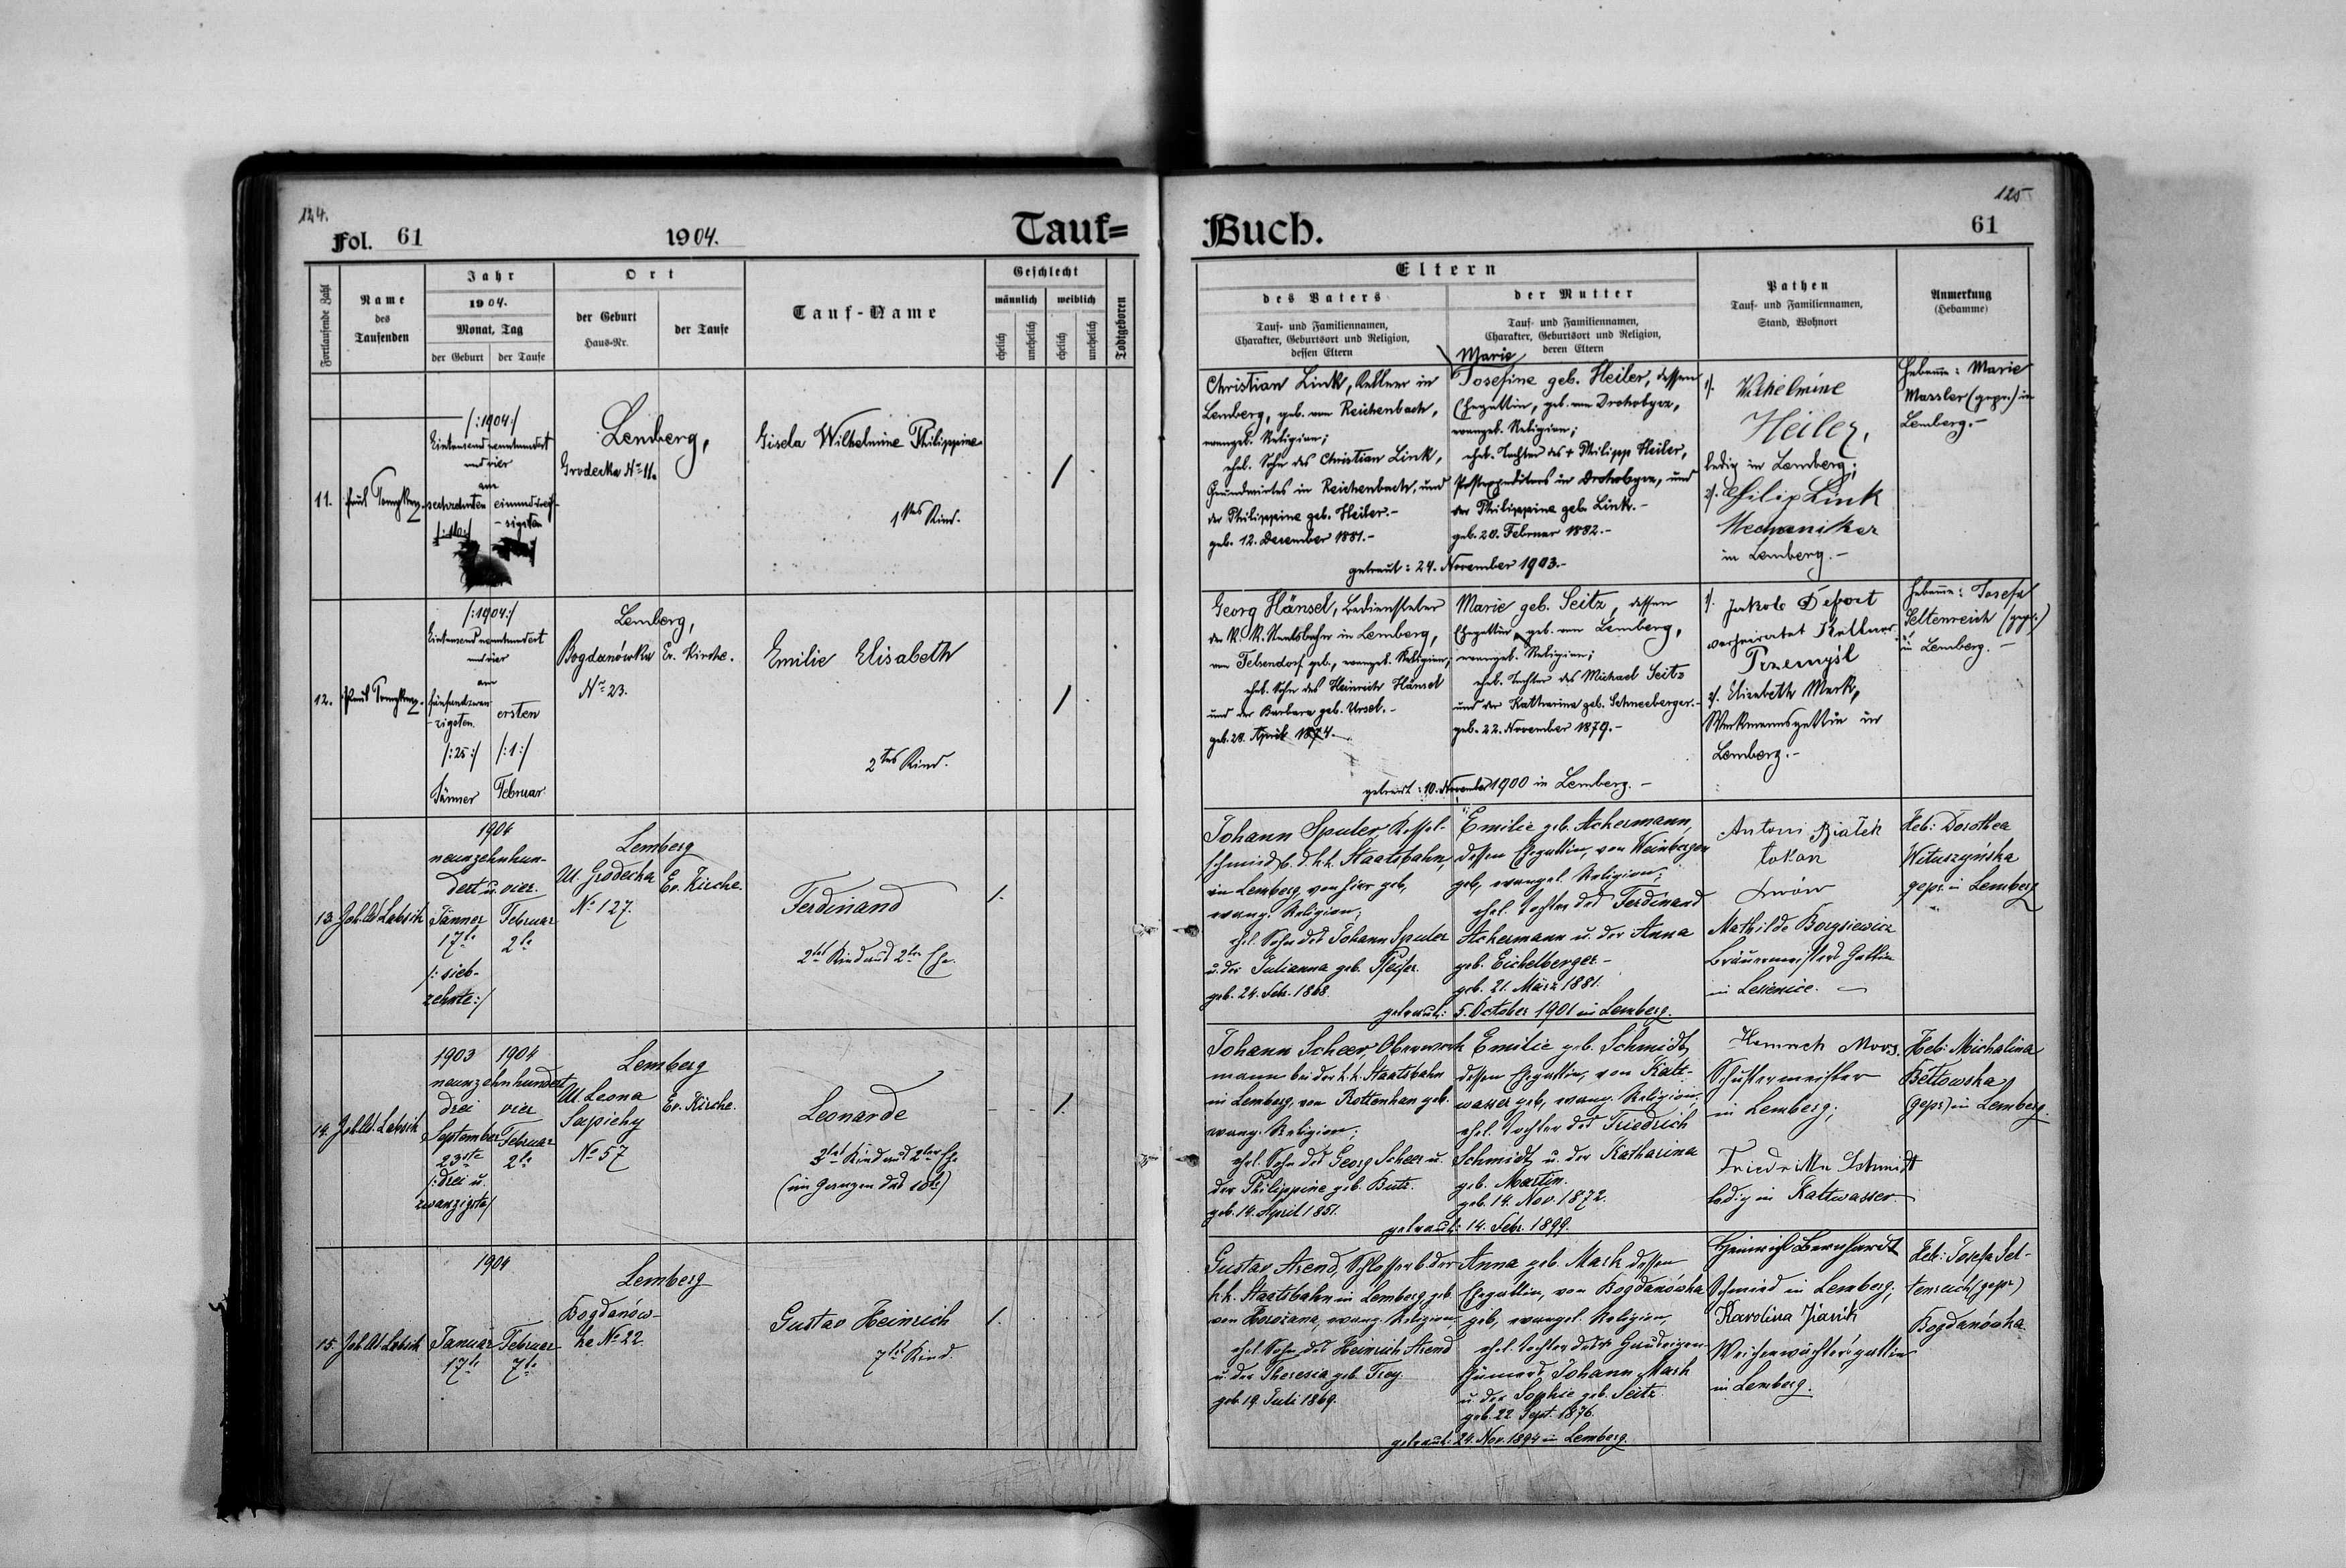 124.
Fol. 61
1904.
Tauf=
Buch.
125
61
Fortlaufende Zahl
Name
des
Taufenden
Jahr
1904.
Monat, Tag
der Geburt
der Taufe
Ort
der Geburt
Haus-Nr.
der Taufe
Tauf-Name
Geschlecht
männlich
weiblich
ehelich
unehelich
ehelich
unehelich
Todtgeboren
Eltern
des Vaters
Tauf- und Familiennamen,
Charakter, Geburtsort und Religion,
dessen Eltern
der Mutter
Tauf- und Familiennamen,
Charakter, Geburtsort und Religion,
deren Eltern
Pathen
Tauf- und Familiennamen,
Stand, Wohnort
Anmerkung
(Hebamme)
11.
/:1904:/
Eintausend neunhundert
und vier
am
sechzehnten
einunddreiß-
-sigsten
/:16:/
Lemberg,
Grodecka No 11.
Gisela Wilhelmine Philippine
1tes Kind.
/
Christian Link, Kellner in
Lemberg, geb. von Reichenbach,
evangel. Religion;
ehel. Sohn des Christian Link,
Grundwirtes in Reichenbach, und
der Philippine geb. Heiler.-
geb. 12. Dezember 1881.-
Marie
Josefine geb. Heiler, dessen
Ehegattin, geb. von Drohobycz,
evangel. Religion;
ehel. Tochter des + Philipp Heiler,
Postexpeditors in Drohobycz, und
der Philippine geb. Link.-
geb. 20. Februar 1882.-
getraut: 24. November 1903.-
1). Wilhelmine
Heiler,
ledig in Lemberg;
2). Philip Link
Mechaniker
in Lemberg.-
Hebamme: Marie
Massler (gepr.) in
Lemberg.-
12.
/:1904:/
Eintausend neunhundert
und vier
am
fünfundzwan-
-zigsten
ersten
/:25:/
/:1:/
Jänner
Februar
Lemberg,
Bogdanówka
No 23.
Ev. Kirche.
Emilie Elisabeth
2tes Kind.
/
Georg Hänsel, Bediensteter
der k. k. Staatsbahn in Lemberg,
von Felsendorf geb., evangel. Religion;
ehel. Sohn des Heinrich Hänsel
und der Barbara geb. Ursel.-
geb. 28. April 1874.-
Marie geb. Seitz, dessen
Ehegattin, geb. von Lemberg,
evangel. Religion;
ehel. Tochter des Michael Seitz
und der Katharina geb. Schneeberger.-
geb. 22. November 1879.-
getraut: 10. November 1900 in Lemberg.-
1). Jakob
verheiratet Kellner
Przemyśl
2). Elisabeth Mark,
Werkmannsgattin in
Lemberg.-
Hebamme: Josefa
Seltenreich (gepr.)
in Lemberg.-
13.
1904
neunzehnhun-
dert u. vier.
Jänner
Februar
17te
2te
/: sieb-
zehnte:/
Lemberg
Ul. Grodecka
No 127.
Ev. Kirche.
Ferdinand
2tes Kind aus 2ter Ehe.
1.
Johann Sputer, Kessel-
schmied b. d. k.k. Staatsbahn,
in Lemberg, von hier geb,
evang. Religion;
ehel. Sohn des Johann Sputer
u. der Julianna geb. Pfeifer.
geb. 24. Feb. 1868.
Emilie geb. Achermann,
dessen Ehegattin, von Weinbergen
geb, evangel. Religion;
ehel. Tochter des Ferdinand
Achermann u. der Anna
geb. Eichelberger-
geb. 21. März 1881.
getraut: 5. October 1901 in Lemberg.
Antoni
tokarz
Lwów
Mathilde
Bräuermeisters Gattin
in Lesienice.
Heb: Dorothea
Wituszyńska
gepr. in Lemberg
14.
1903
1904
neunzehnhundert
drei
vier
September
Februar
23ste
2te
/: drei u.
zwanzigste/
Lemberg
Ul. Leona
Sapiehy
No 57
Ev. Kirche.
Leonarde
3tes Kind aus 2ter Ehe
(im Ganzen das 10te)
1.
Johann Scheer, Oberwerk-
mann bei der k.k. Staatsbahn
in Lemberg, von Rottenhan geb.
evang. Religion;
ehel. Sohn des Georg Scheer u.
der Philippine geb. Butz.
geb. 14. April 1851.
Emilie geb. Schmidt,
dessen Ehegattin, von Kalt-
wasser geb, evang. Religion;
ehel. Tochter des Friedrich
Schmidt u. der Katharina
geb. Martin.
geb. 14. Nov. 1872.
getraut: 14. Febr. 1899.
Heinrich
Schustermeister
in Lemberg;
Schmidt
ledig in Kaltwasser
Heb: Michalina
(gepr) in Lemberg.
15.
1904
Januar
Februar
17te
7te
Lemberg
Bogdanów-
ka No 22
Gustav Heinrich
7tes Kind.
1.
Gustav Arend, Schlosser b. der
k.k. Staatsbahn in Lemberg, geb.
evang. Religion;
ehel. Sohn des Heinrich Arend
u. der Theresia geb. Frey.
geb. 19. Juli 1869.
Anna geb. Mark dessen
Ehegattin, von Bogdanówka
geb, evangel. Religion,
Johann Mark
u. der Sophie geb. Seitz.
geb. 22 Sept. 1876.
getraut: 24. Nov. 1894 in Lemberg.
Heinrich Bernhardt
Schmied in Lemberg;
Karolina Janik
Weichenwächtersgattin
in Lemberg.
Heb: Josefa Sel-
tenreich (gepr)
Bogdanówka.